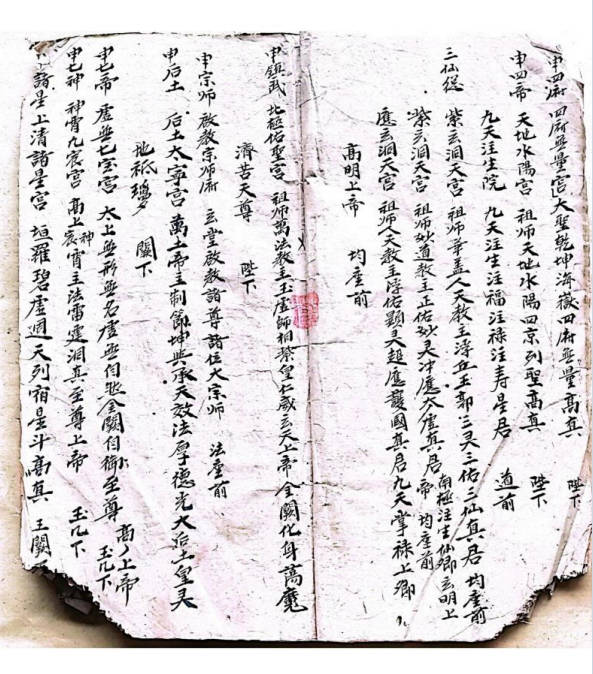 申四府 四府無量宮大聖乾坤海嶽四府無量高真 陛下
申四帝 天地水陽宮 祖师天地水陽四京列聖高真 陛下
九天注生院 九天注生注福注禄注寿星居 道前
三仙從 紫云洞天宮 祖师華盖人天教主浮丘王郭三灵三佑三仙真居 均座前
紫云洞天宮 祖师妙道教主正佑妙灵冲應 虚真居 南極注生仙卿玄明上帝 均座前
應玄洞天宮 祖师人天教主 佑顕灵超應護國真居九天掌禄上卿
高明上帝 均座前
申鎮武 北極佑聖宮 祖师萬法教主玉虚師相 皇仁威玄天上帝金闕化身蕩魔
濟苦天尊 陛下
申宗师 啟教宗师府 玄堂啟教諸尊諸位大宗师 法座前
申后土 后土太寧宮 萬土帝主制節坤典承天效法厚德光大后土皇灵
地祇 闕下
申七帝 虚無七宝宮 太上無形無名虚無自 金闕自 至尊 高上帝 玉几下
申七神 神霄九宸宮 高上神霄 宸主法雷霆洞真至尊上帝 玉几下
諸星上清諸星宮 垣羅碧虚週天列宿星斗高真 玉闕